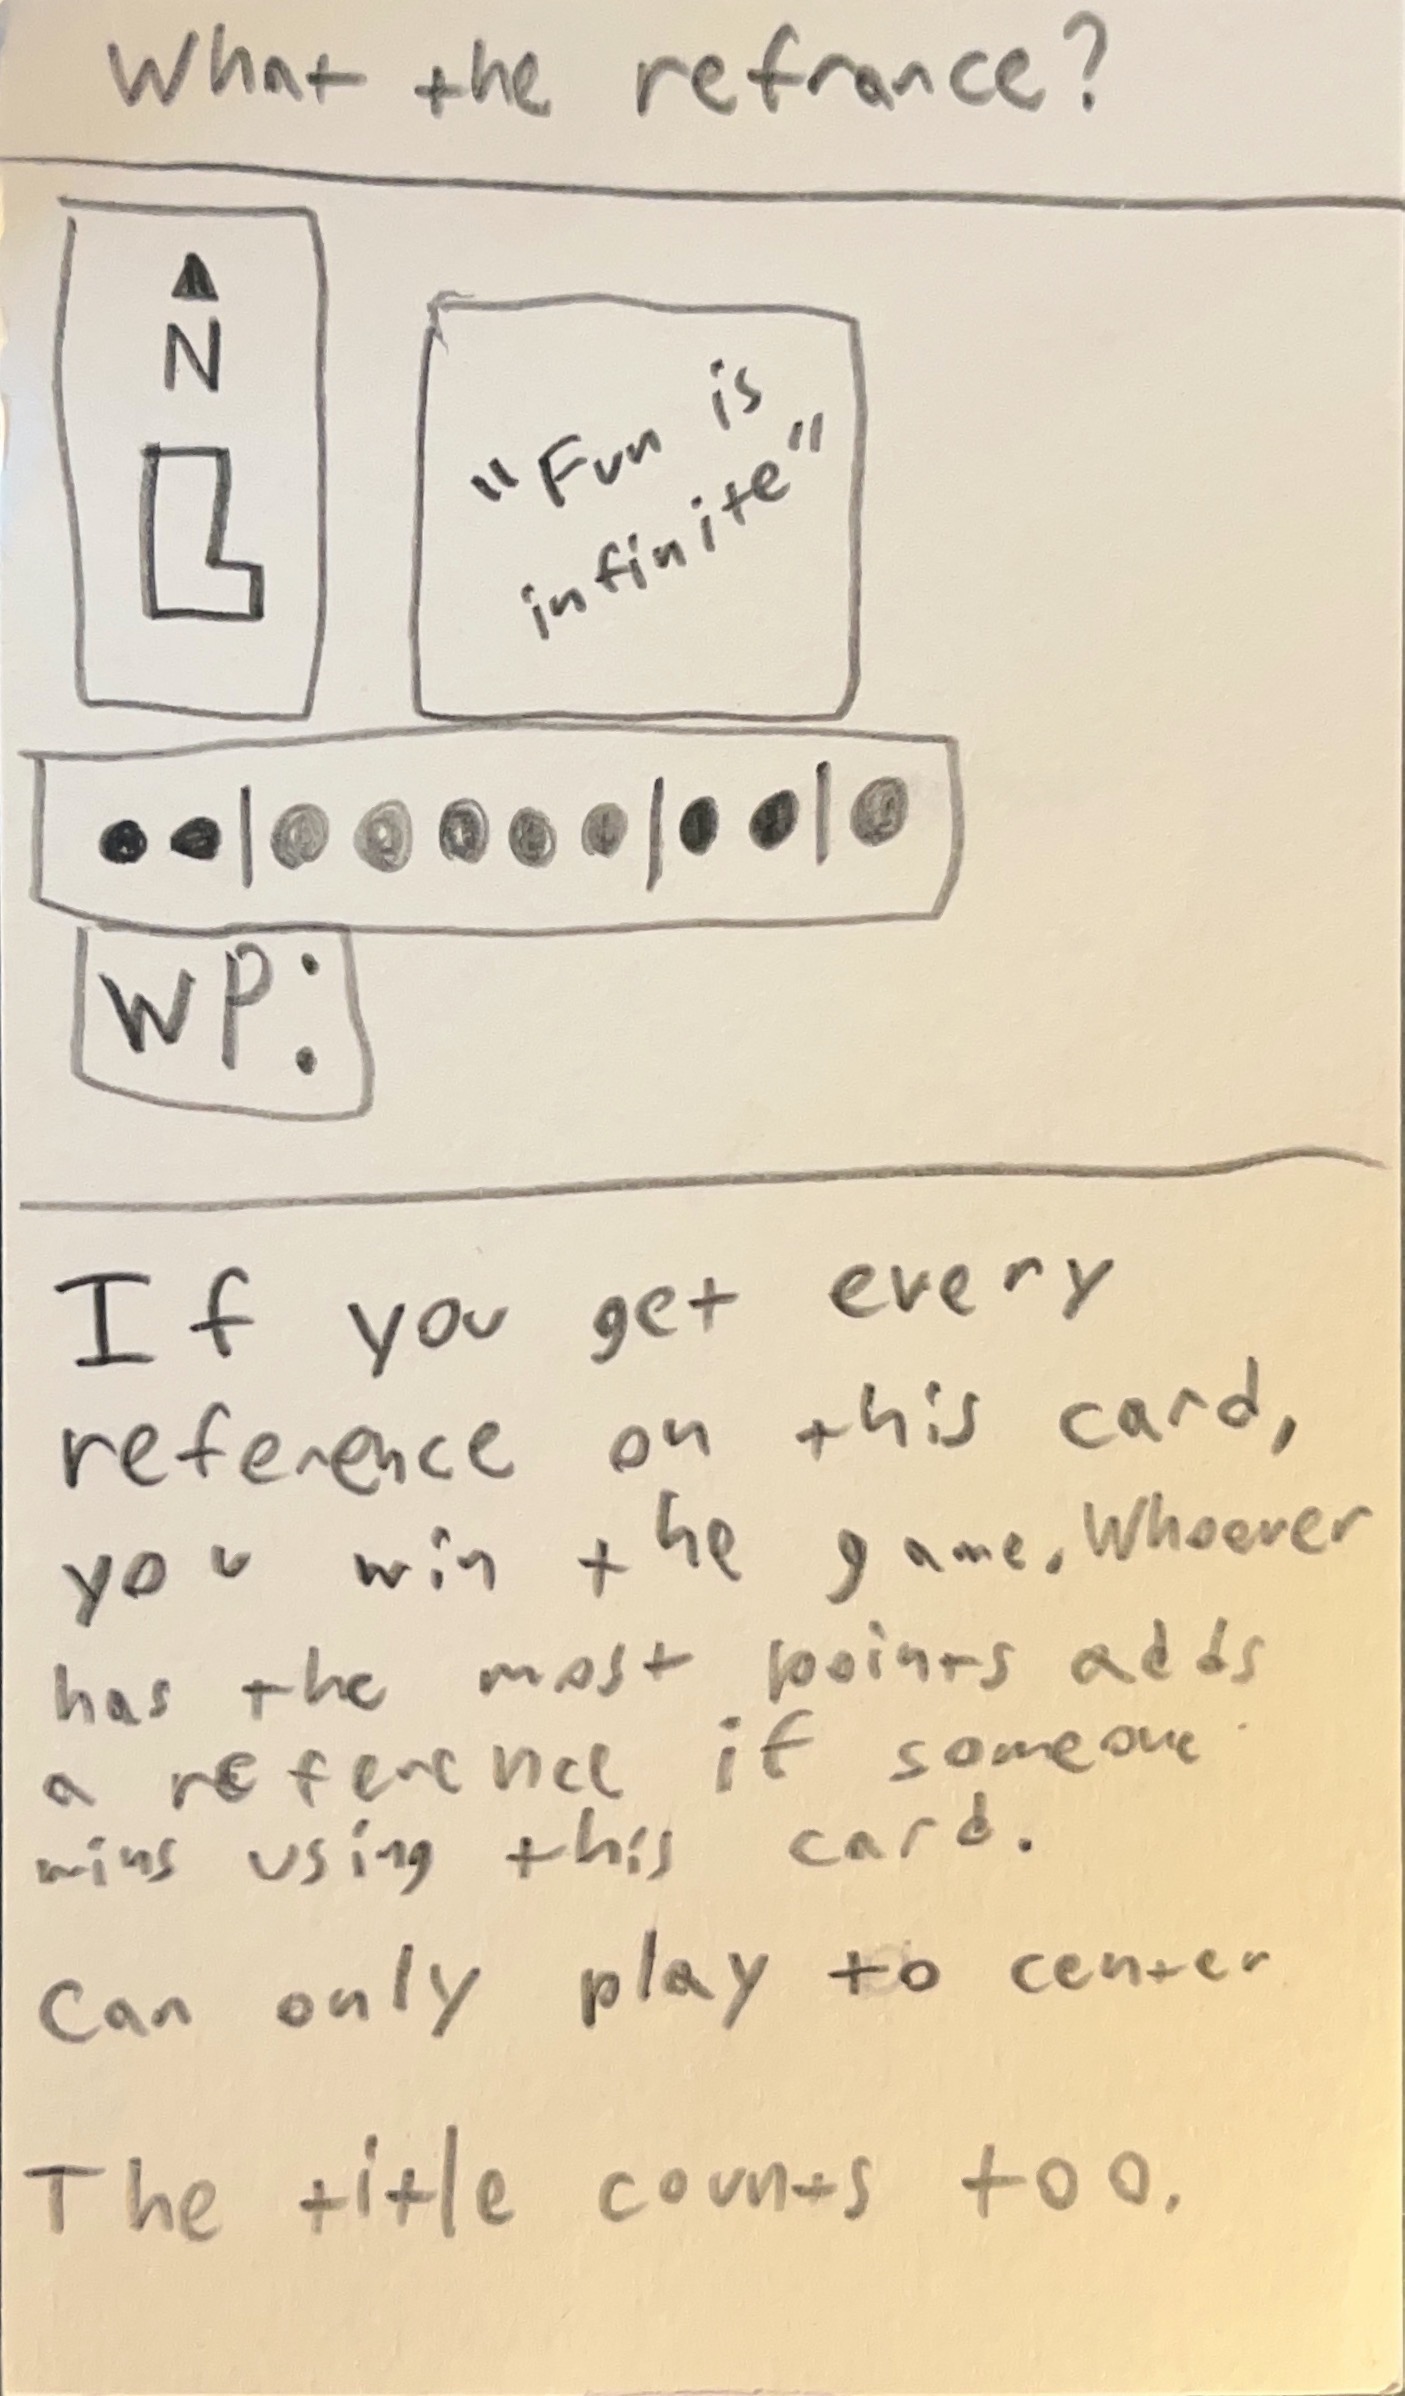 What the refrance?
N
"Fun is
infinite"
WP:
If you get every
reference on this card,
you win the game. Whoever
has the most points adds
a reference if someone
wins using this card.
Can only play to center
The title counts too.